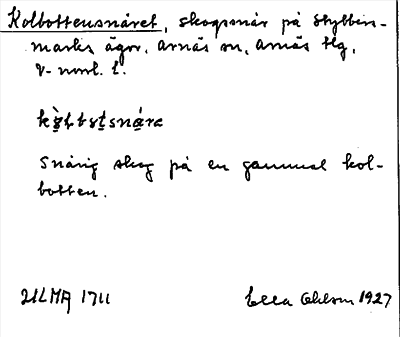 Kolbottensnåret, skogssnår på Stybbin-
marks ägor, Arnäs sn, Arnäs tlg,
V-norrl. l.
Snårig skog på en gammal kol-
botten.
ULMA 1711 Ella Ohlson 1927